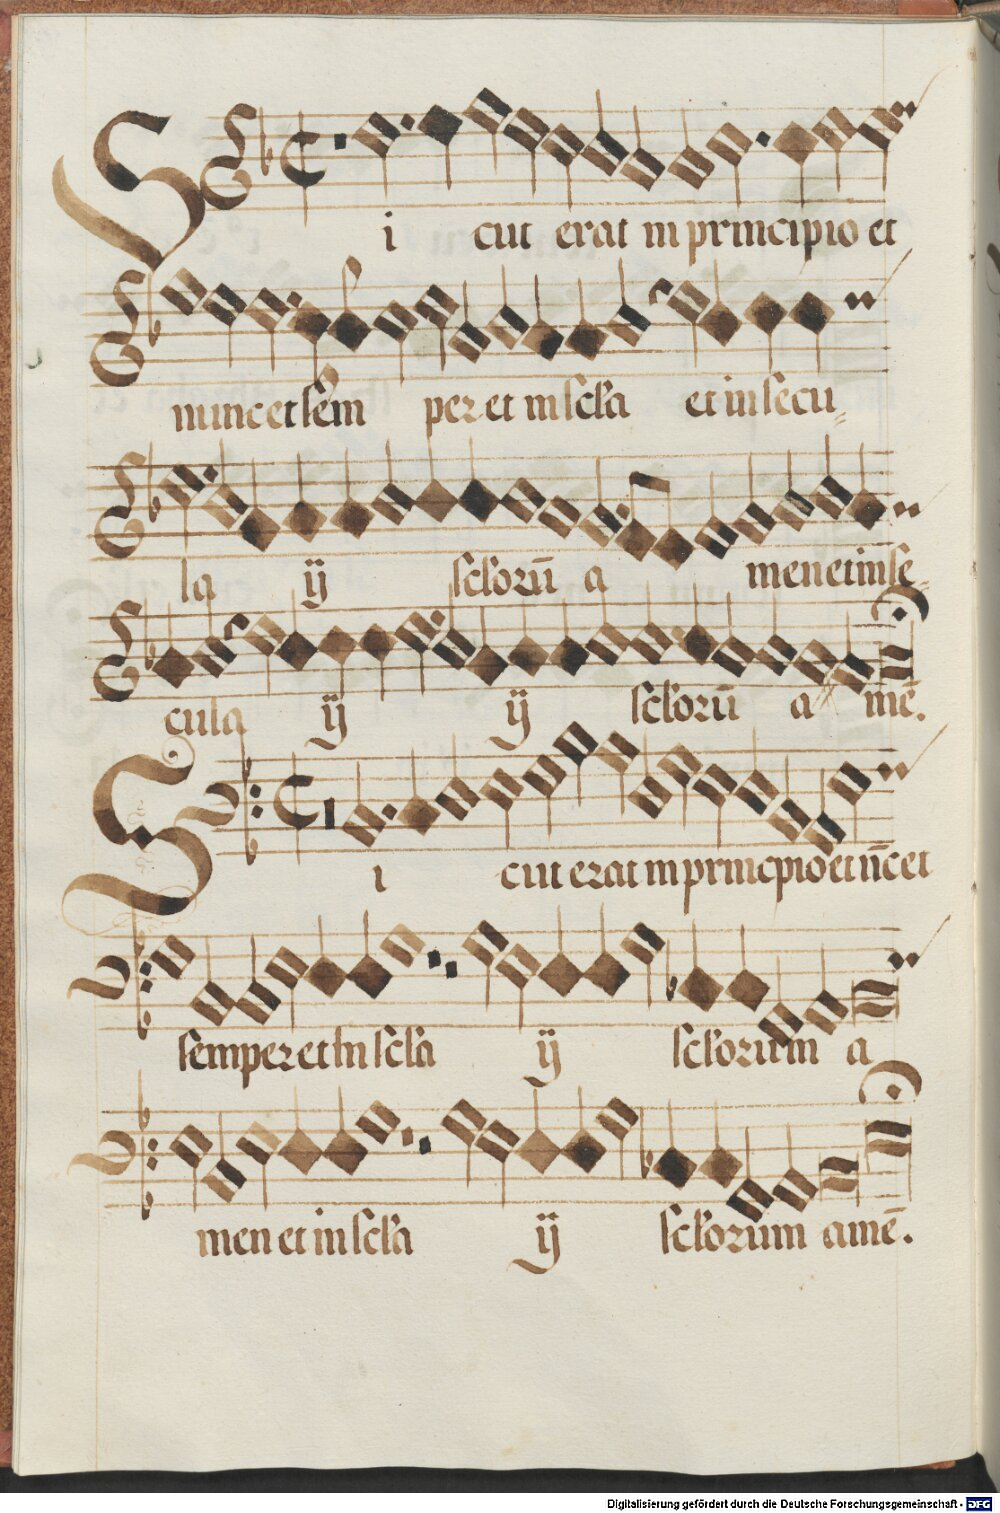 Si cut erat in principio et
nunc et sem̄ per et in scl̓a et in secu=
la ij scl̓orū a men et in se=
cula ij ij scl̓orū a mē.
Si cut erat in principio et nc̄ et
semper et In scl̓a ij scl̓orum a
men et in scl̓a ij scl̓orum amē.
Digitalisierung gefördert durch die Deutsche Forschungsgemeinschaft - DFG